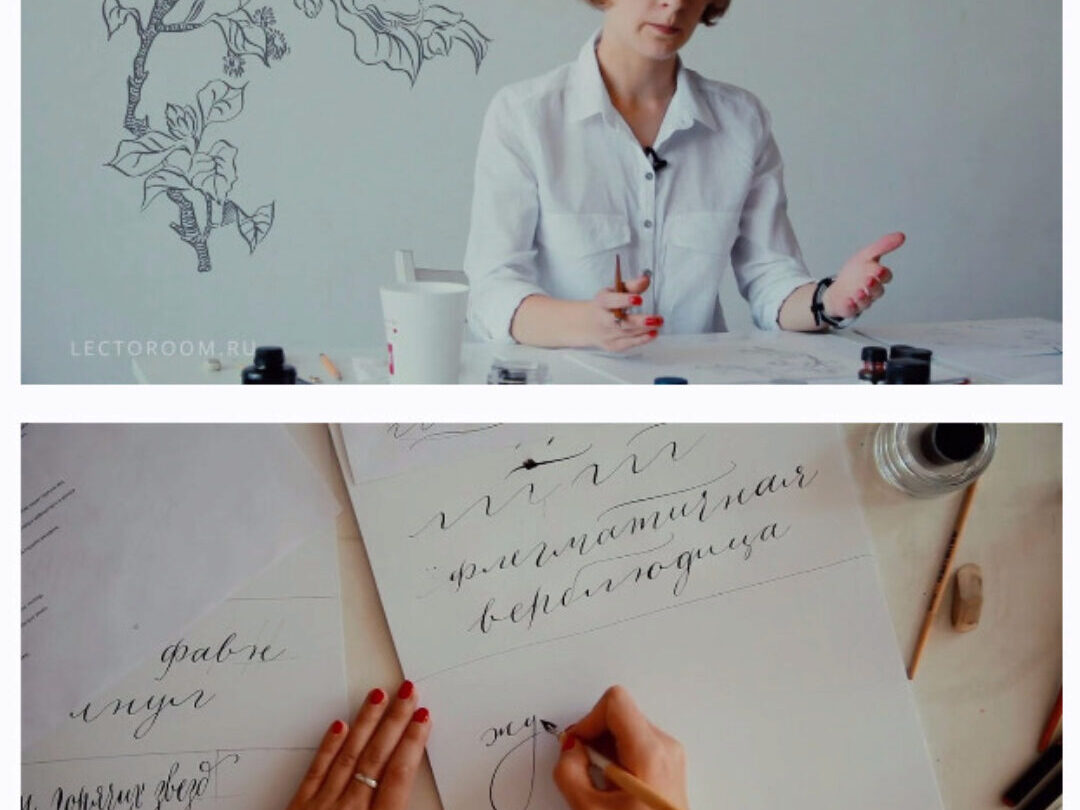 LECTOROOM.RU
флегматичная
верблюдица
фавн
лнул
жу
горячих звезд